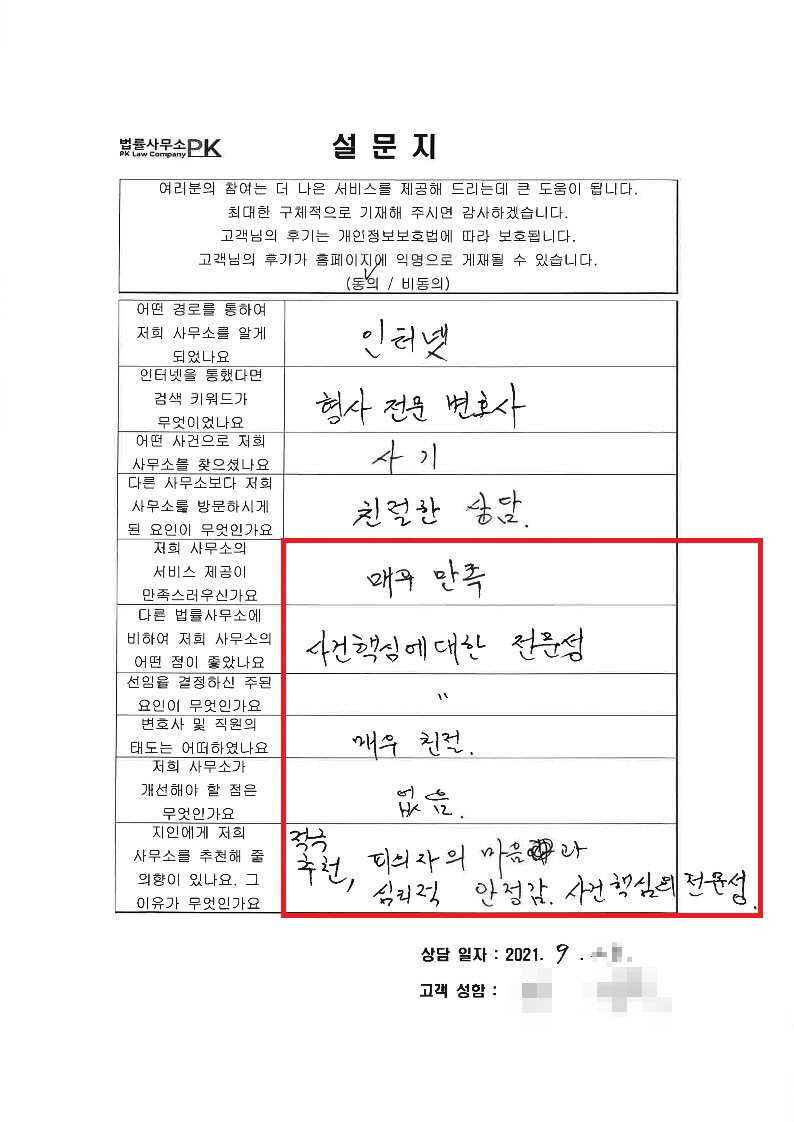 법률사무소PK
PK Law Company
설 문 지
여러분의 참여는 더 나은 서비스를 제공해 드리는데 큰 도움이 됩니다.
최대한 구체적으로 기재해 주시면 감사하겠습니다.
고객님의 후기는 개인정보보호법에 따라 보호됩니다.
고객님의 후기가 홈페이지에 익명으로 게재될 수 있습니다.
(동의 / 비동의)
어떤 경로를 통하여
저희 사무소를 알게
되었나요
인터넷
인터넷을 통했다면
검색 키워드가
무엇이었나요
형사 전문 변호사
어떤 사건으로 저희
사무소를 찾으셨나요
사기
다른 사무소보다 저희
사무소를 방문하시게
된 요인이 무엇인가요
친절한 상담.
저희 사무소의
서비스 제공이
만족스러우신가요
매우 만족
다른 법률사무소에
비하여 저희 사무소의
어떤 점이 좋았나요
사건핵심에대한 전문성
선임을 결정하신 주된
요인이 무엇인가요
〃
변호사 및 직원의
태도는 어떠하였나요
매우 친절.
저희 사무소가
개선해야 할 점은
무엇인가요
없음.
지인에게 저희
사무소를 추천해 줄
의향이 있나요. 그
이유가 무엇인가요
적극
추천, 피의자의 마음과
심리적 안정감. 사건핵심의 전문성.
상담 일자 : 2021. 9 .
고객 성함 :